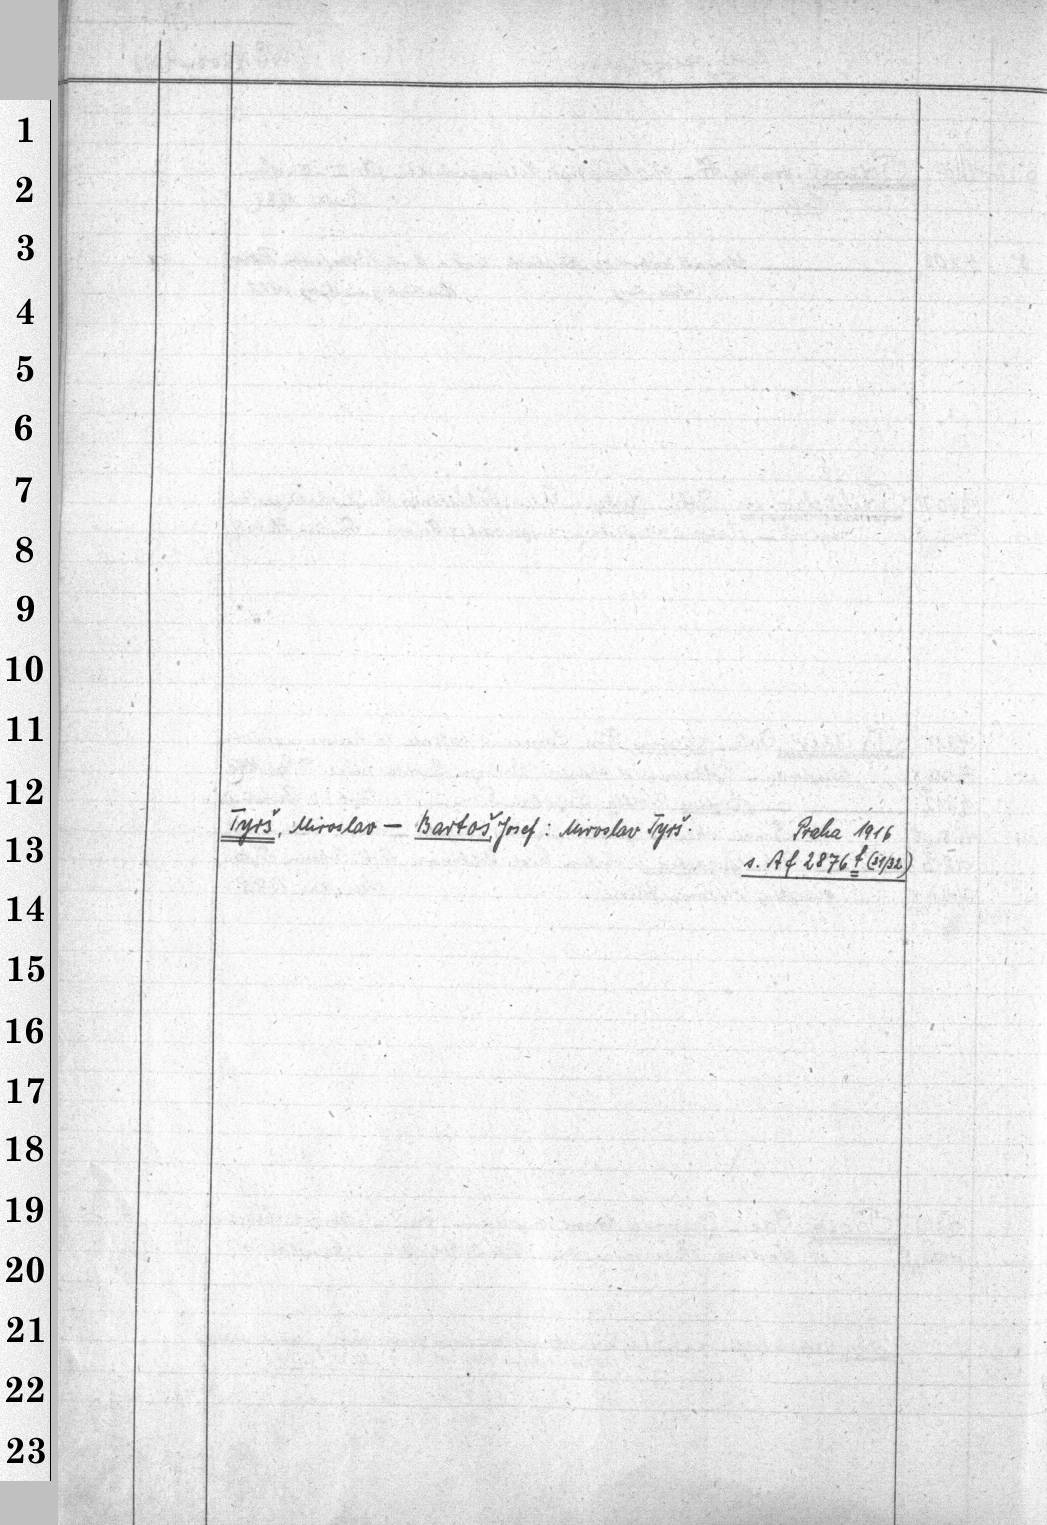 1
2
3
4
5
6
7
8
9
10
11
12
Tyrš, Miroslav — Bartoš, Josef : Miroslav Tyrš. Praha 1916
13
s. Af 2876 f (31/32)
14
15
16
17
18
19
20
21
22
23